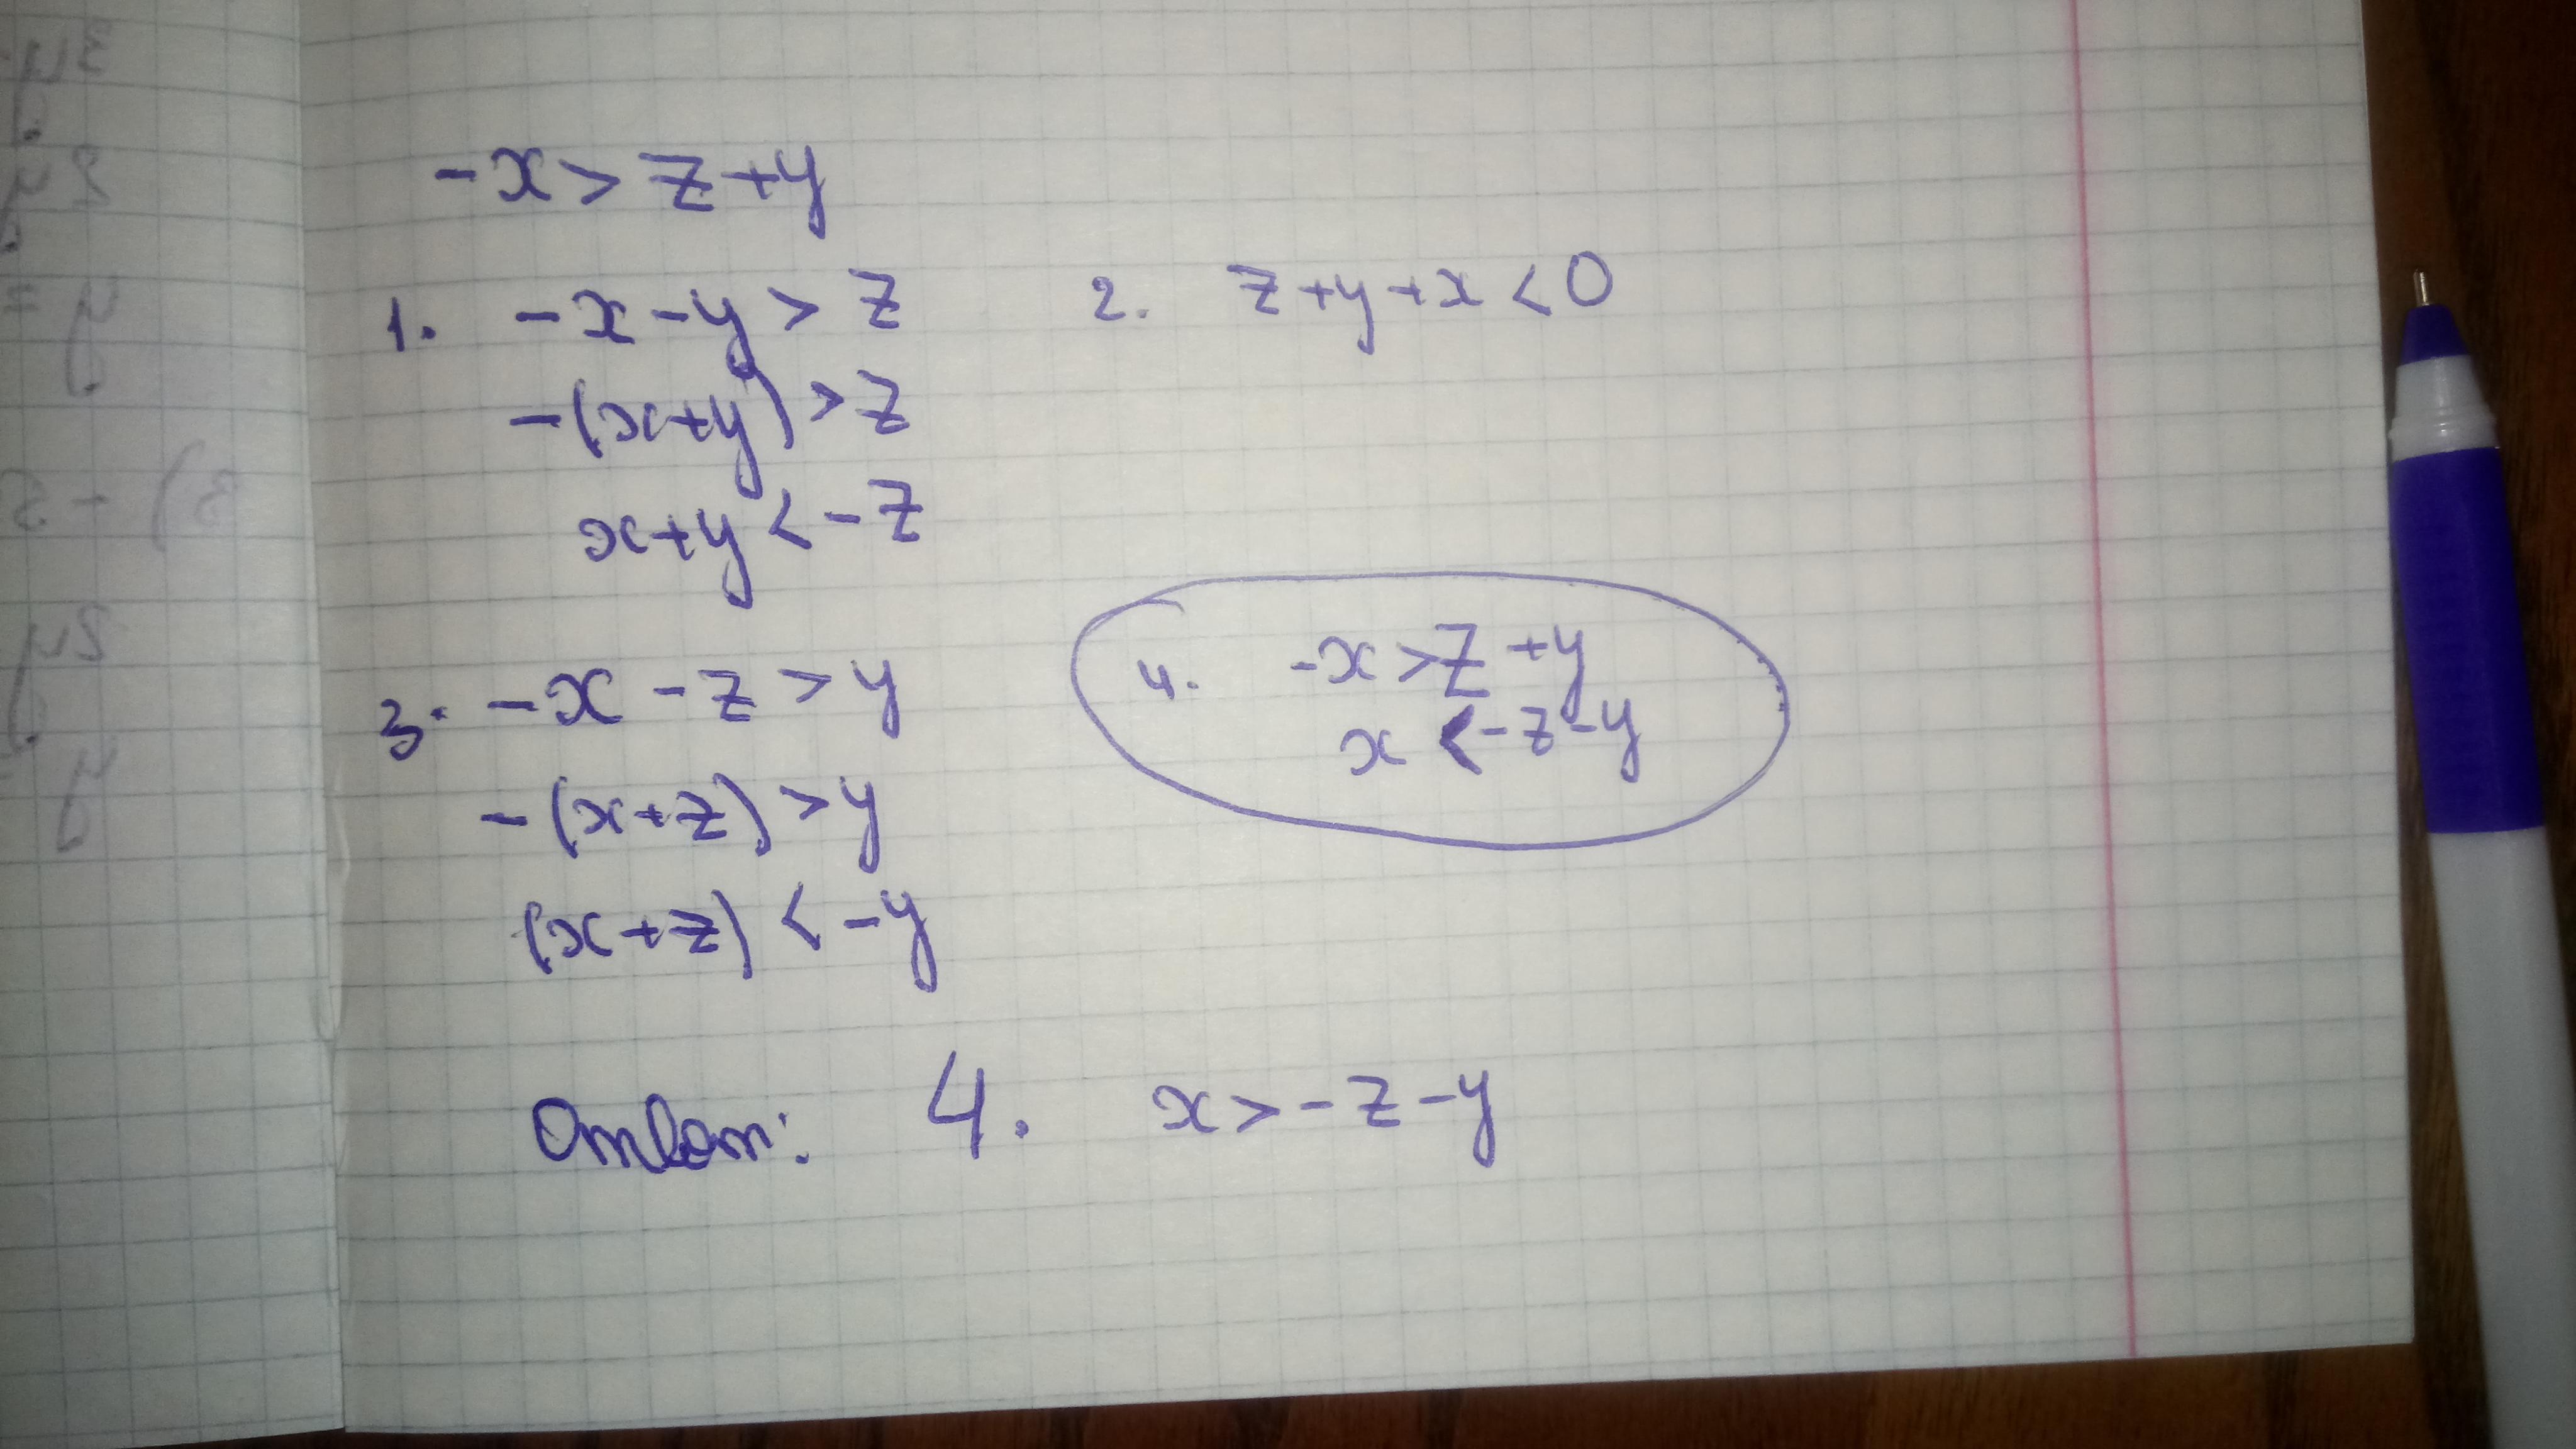 -x > z + y
1. -x - y > z
-(x+y) > z
x+y < -z
2. z + y + x < 0
3. -x - z > y
-(x+z) > y
(x+z) < -y
4. -x > z + y
x < -z - y
Ответ: 4. x > -z - y